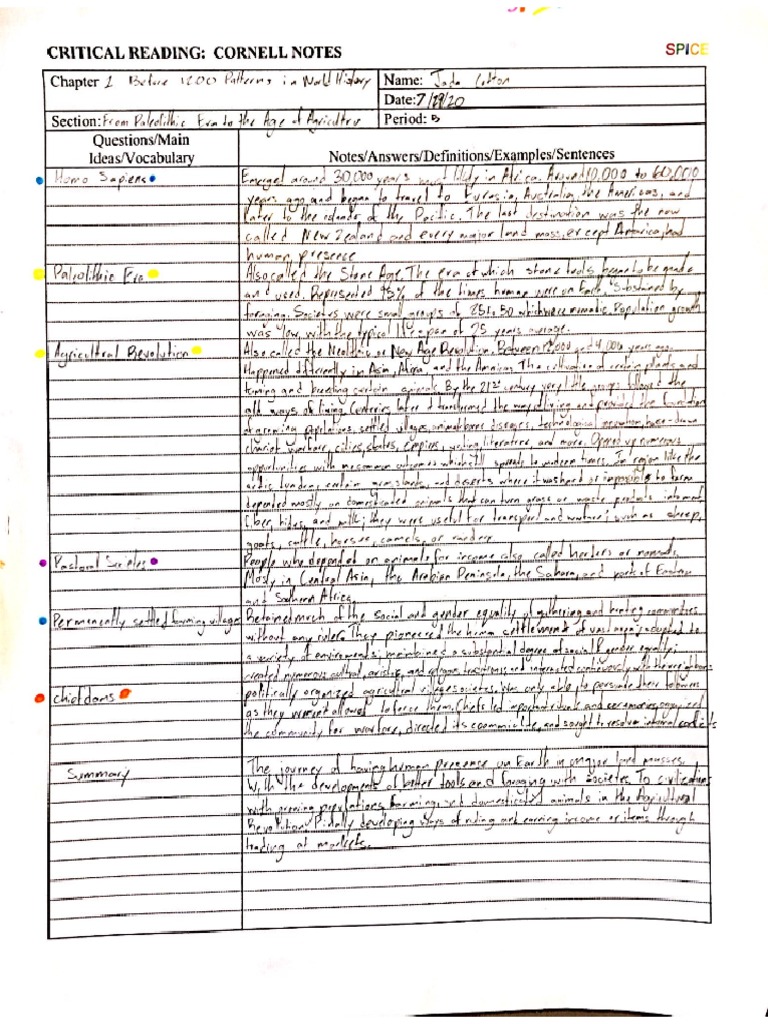 SPICE
CRITICAL READING: CORNELL NOTES
Chapter 1 Before 1200 Patterns in World History
Name: Jada
Date: 7/29/20
Section: From Paleolithic Era to the Age of Agriculture
Period: B
Questions/Main Ideas/Vocabulary
Notes/Answers/Definitions/Examples/Sentences
Homo Sapiens
Emerged around 30,000 years in Africa. Around 10,000 to 60,000
years ago and began to travel to Eurasia, Australia, the Americas, and
later to the islands of the Pacific. The last destination was the now
called New Zealand and every major land mass, except Antarctica, had
human presence
Paleolithic Era
Also called the Stone Age. The era of which stone tools began to be made
and used. Represented 95% of the times humans were on Earth. Substained by
foraging. Societies were small groups of 25 to 50 which were nomadic. Population growth
was low, with the typical life span of 25 years average.
Agricultural Revolution
Also called the Neolithic or New Age Revolution. Between 12,000 and 4,000 years ago.
Happened differently in Asia, Africa, and the Americas. The cultivation of certain plants and
taming and breeding certain animals. By the 21st century very little groups followed the
old ways of living. Centuries later it transformed the way of living and provided the foundation
of growing populations, settled villages, animal-borne diseases, technological horse-drawn
chariot warfare, cities, states, empires, writing, literature, and more. Opened up numerous
opportunities with uncommon outcomes which still to modern times. In region like the
arctic tundra, certain grasslands, and deserts where it was hard or impossible to farm
depended mostly on domesticated animals that can turn grass or waste products into meat
fiber, hides, and milk; they were useful for transport and warfare; such as sheep,
goats, cattle, horses, camels, or reindeer
Pastoral Societies
People who depended on animals for income also called herders or nomads.
Mostly in Central Asia, the Arabian Peninsula, the Sahara, and parts of Eastern
and Southern Africa
Permenently settled farming villages
Retained much of the social and gender equality of gathering and hunting communities
without any rulers. They pioneered the human settlement of vast areas; adapted to
a variety of environments; maintaines a substantial degree of social & gender equality;
created numerous cultural, artistic, and religous traditions; and interacted continuously with their neighbors
Chiefdoms
politically organized agricultural village societies. Was only able to persuade their followers
as they weren't allowed to force them. Chiefs led important rituals and ceremonies, organized
the community for warfare, directed its economic life, and sought to resolve internal conflicts
Summary
The journey of having human presence on Earth in major land masses.
With the developments of better tools and foraging with societies. To civilizations
with growing populations farming, and domesticated animals in the Agricultural
Revolution. Finally developing ways of ruling and earning income or items through
trading at markets.